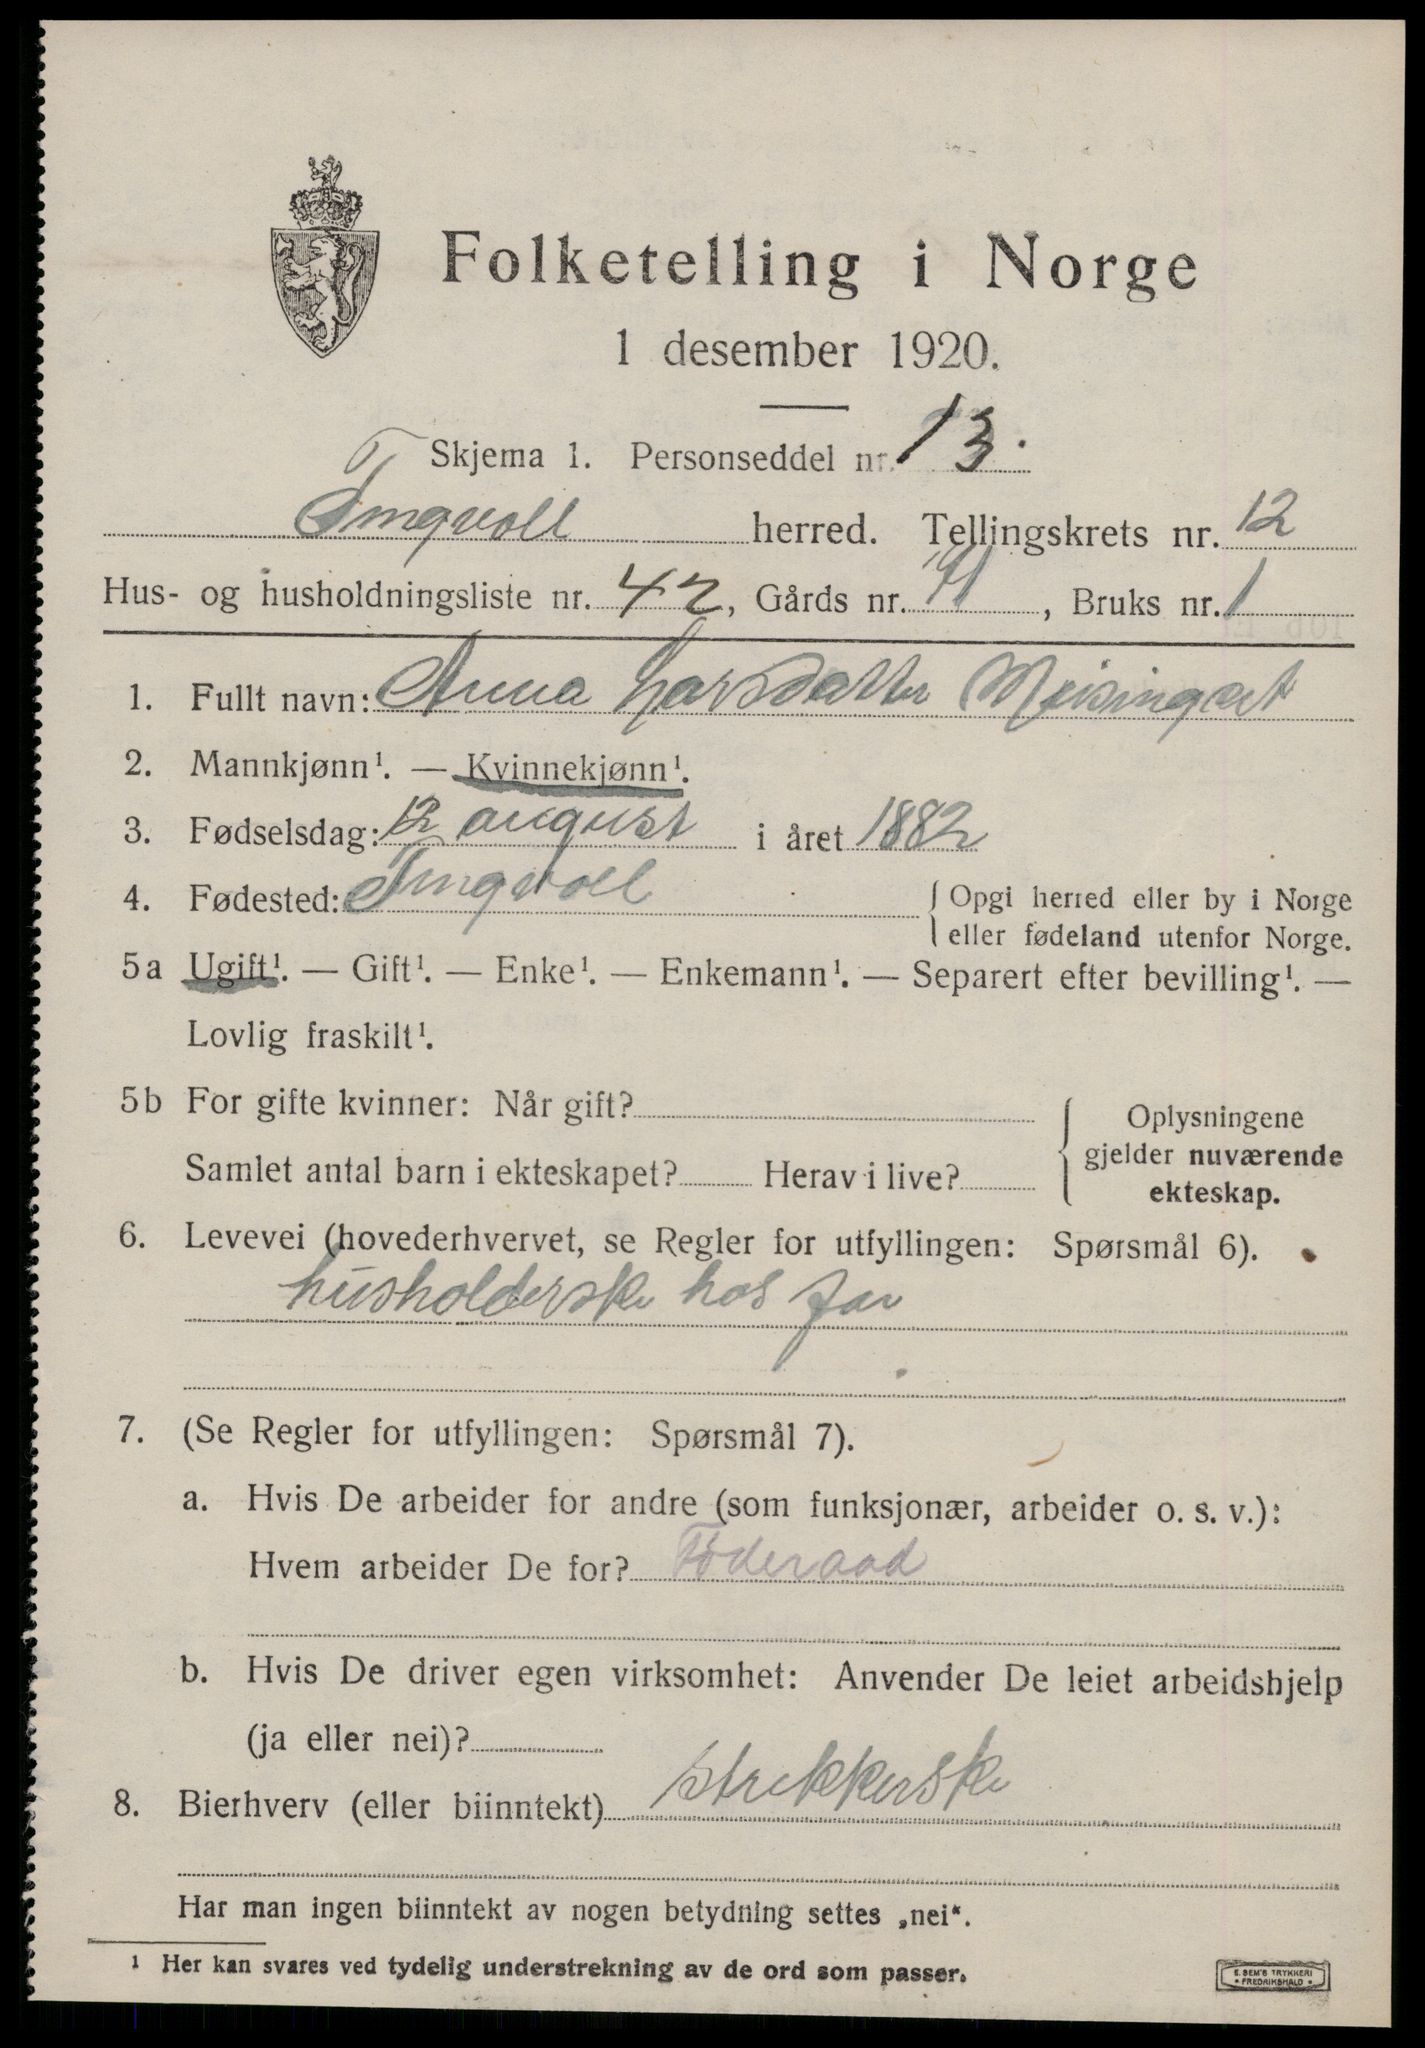 Folketelling i Norge
1 desember 1920.
Skjema 1. Personseddel nr. 13.
Tingvoll herred. Tellingskrets nr. 12
Hus- og husholdningsliste nr. 42, Gårds nr. 41, Bruks nr. 1
1. Fullt navn: Anna Larsdatter Meisingset
2. Mannkjønn¹. — Kvinnekjønn¹.
3. Fødselsdag: 12 august i året 1882
4. Fødested: Tingvoll { Opgi herred eller by i Norge
eller fødeland utenfor Norge.
5a Ugift¹. — Gift¹. — Enke¹. — Enkemann¹. — Separert efter bevilling¹. —
Lovlig fraskilt¹.
5b For gifte kvinner: Når gift?
Samlet antal barn i ekteskapet? Herav i live?
Oplysningene
gjelder nuværende
ekteskap.
6. Levevei (hovederhvervet, se Regler for utfyllingen: Spørsmål 6).
husholderske hos far
7. (Se Regler for utfyllingen: Spørsmål 7).
a. Hvis De arbeider for andre (som funksjonær, arbeider o. s. v.):
Hvem arbeider De for? Föderaad
b. Hvis De driver egen virksomhet: Anvender De leiet arbeidshjelp
(ja eller nei)?
8. Bierhverv (eller biinntekt) strikkerske
Har man ingen biinntekt av nogen betydning settes „nei“.
¹ Her kan svares ved tydelig understrekning av de ord som passer.
E. SEM'S TRYKKERI
FREDRIKSHALD